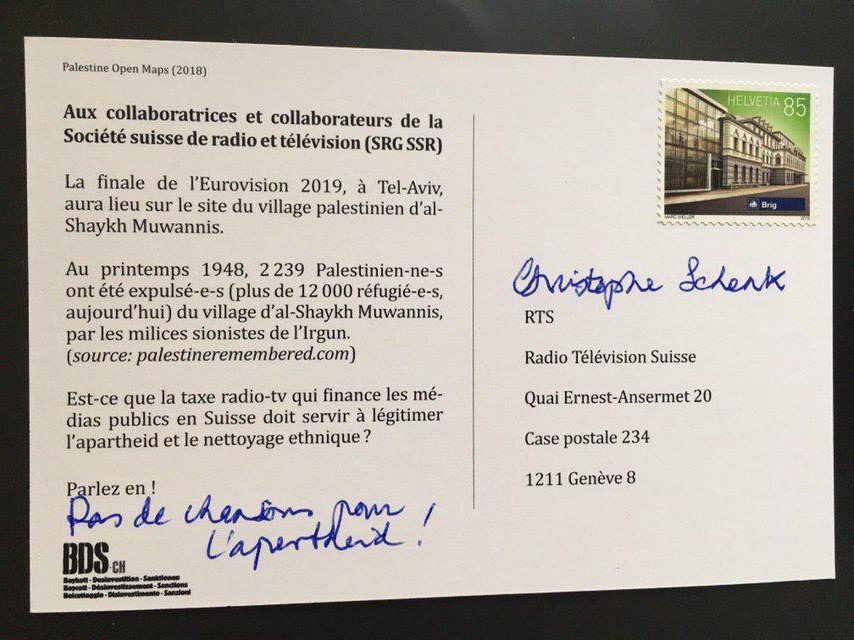 Palestine Open Maps (2018)
Aux collaboratrices et collaborateurs de la
Société suisse de radio et télévision (SRG SSR)
La finale de l'Eurovision 2019, à Tel-Aviv,
aura lieu sur le site du village palestinien d'al-
Shaykh Muwannis.
Au printemps 1948, 2 239 Palestinien-ne-s
ont été expulsé-e-s (plus de 12 000 réfugié-e-s,
aujourd'hui) du village d'al-Shaykh Muwannis,
par les milices sionistes de l'Irgun.
(source: palestineremembered.com)
Est-ce que la taxe radio-tv qui finance les mé-
dias publics en Suisse doit servir à légitimer
l'apartheid et le nettoyage ethnique ?
Parlez en !
Pas de chansons pour
l'apartheid !
BDS.CH
Boykott - Desinvestition - Sanktionen
Boycott - Désinvestissement - Sanctions
Boicottaggio - Disinvestimento - Sanzioni
HELVETIA 85
Brig
MARC WELLER
Christophe Schenk
RTS
Radio Télévision Suisse
Quai Ernest-Ansermet 20
Case postale 234
1211 Genève 8